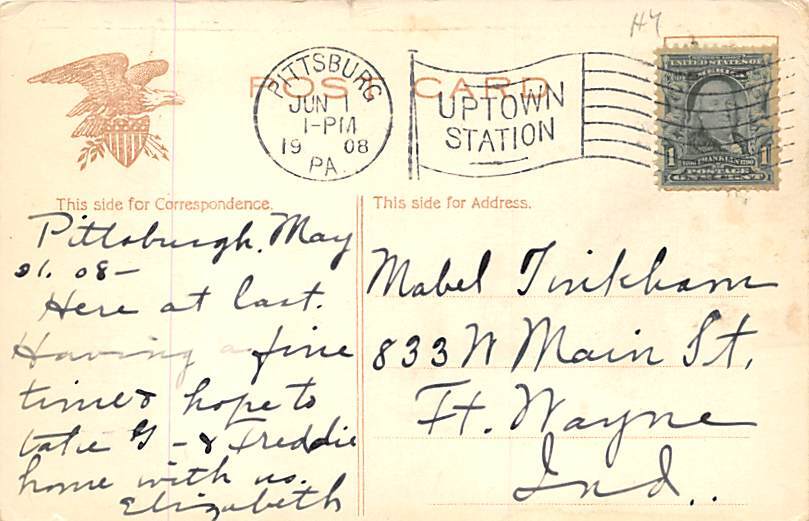 H4
POST CARD
PITTSBURG
JUN 1
1-PM
19 08
PA.
UPTOWN
STATION
UNITED STATES OF
AMERICA
1 FRANKLIN 1
POSTAGE
ONE CENT
This side for Correspondence.
Pittsburgh, May
31. 08-
Here at last.
Having a fine
time & hope to
take G - & Freddie
home with us.
Elizabeth
This side for Address.
Mabel Tinkham
833 W Main St,
Ft. Wayne
Ind..